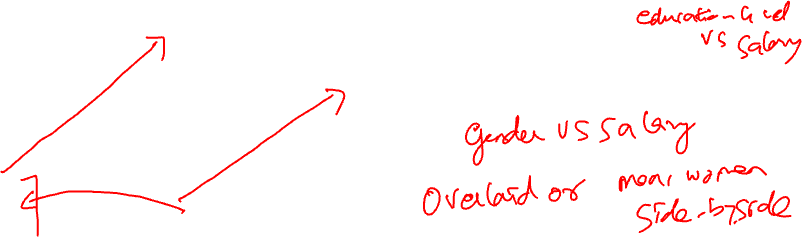 education level
vs salary
Gender vs salary
Overlaid or men, women
side-by-side